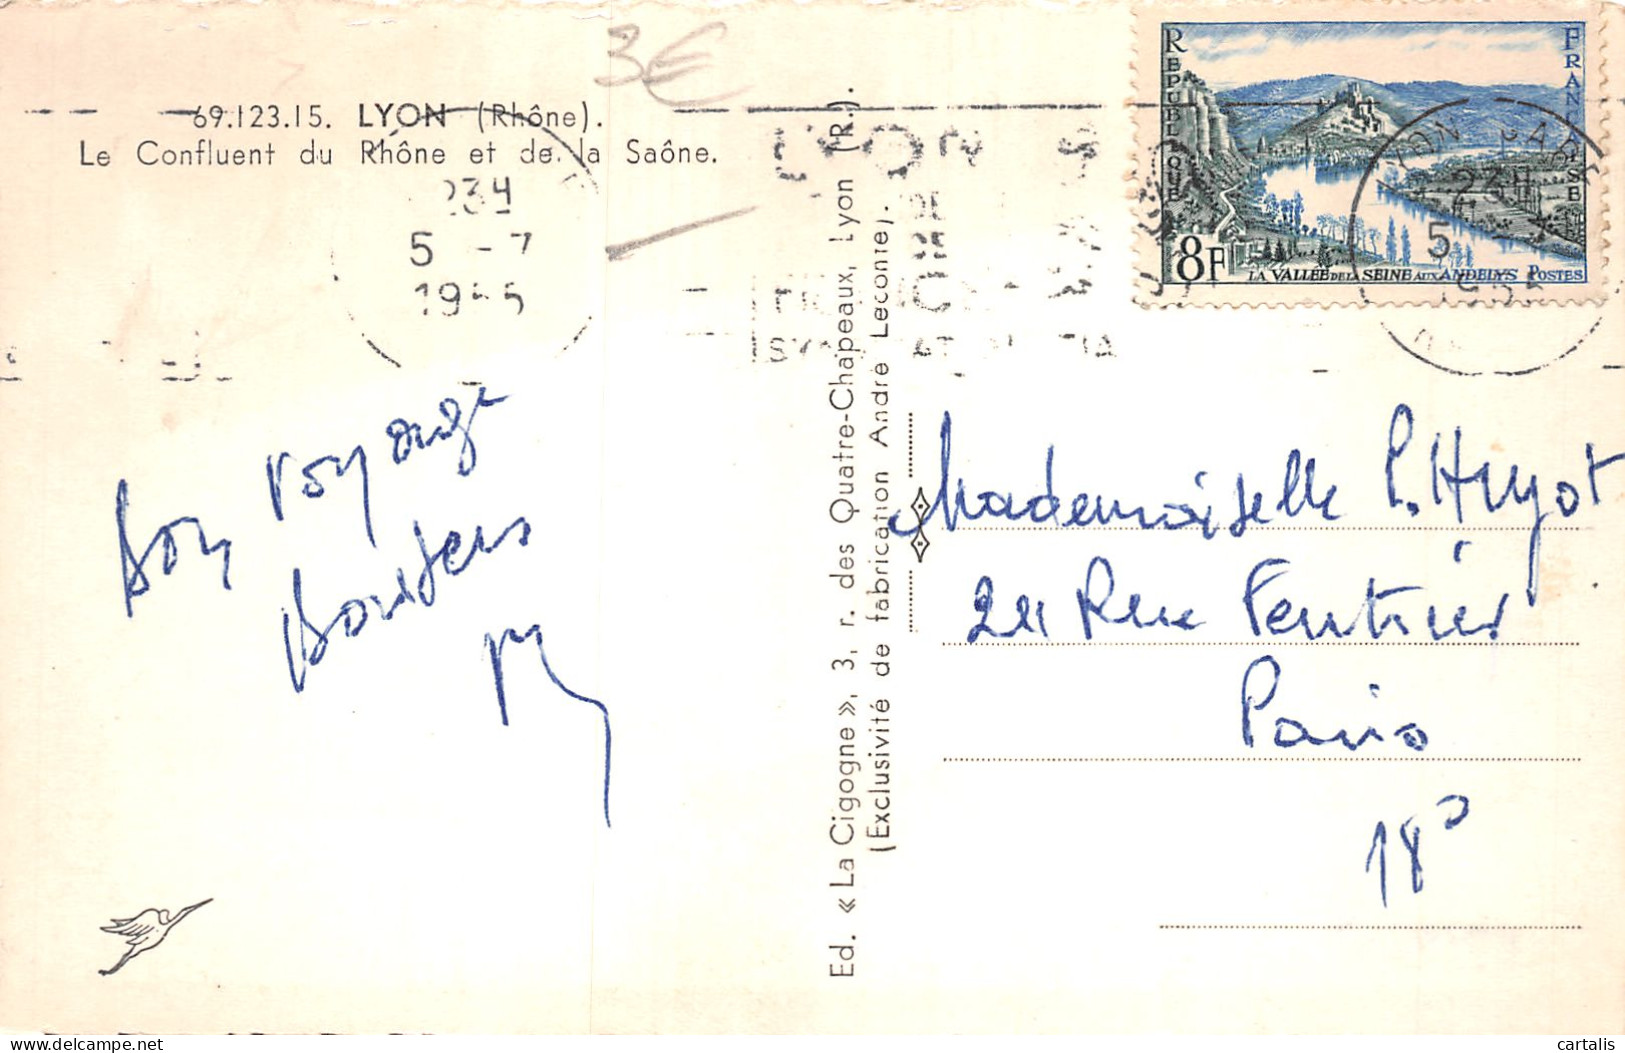 3€
69.123.15. LYON (Rhône).
Le Confluent du Rhône et de la Saône.
23H
5 - 7
1955
Bon voyage
P
Ed. « La Cigogne », 3, r. des Quatre-Chapeaux, Lyon (R.).
(Exclusivité de fabrication André Leconte).
LYON
REPUBLIQUE
FRANCAISE
8F
LA VALLÉE DE LA SEINE AUX ANDELYS POSTES
LYON GARE
23H
5 - 7
1955
Mademoiselle P. Huyot
Rue
Paris
18°
delcampe.net
cartalis